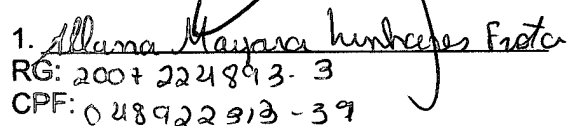 1. Allana Mayara Linhares Frota
RG: 2007 224893-3
CPF: 048922313-39